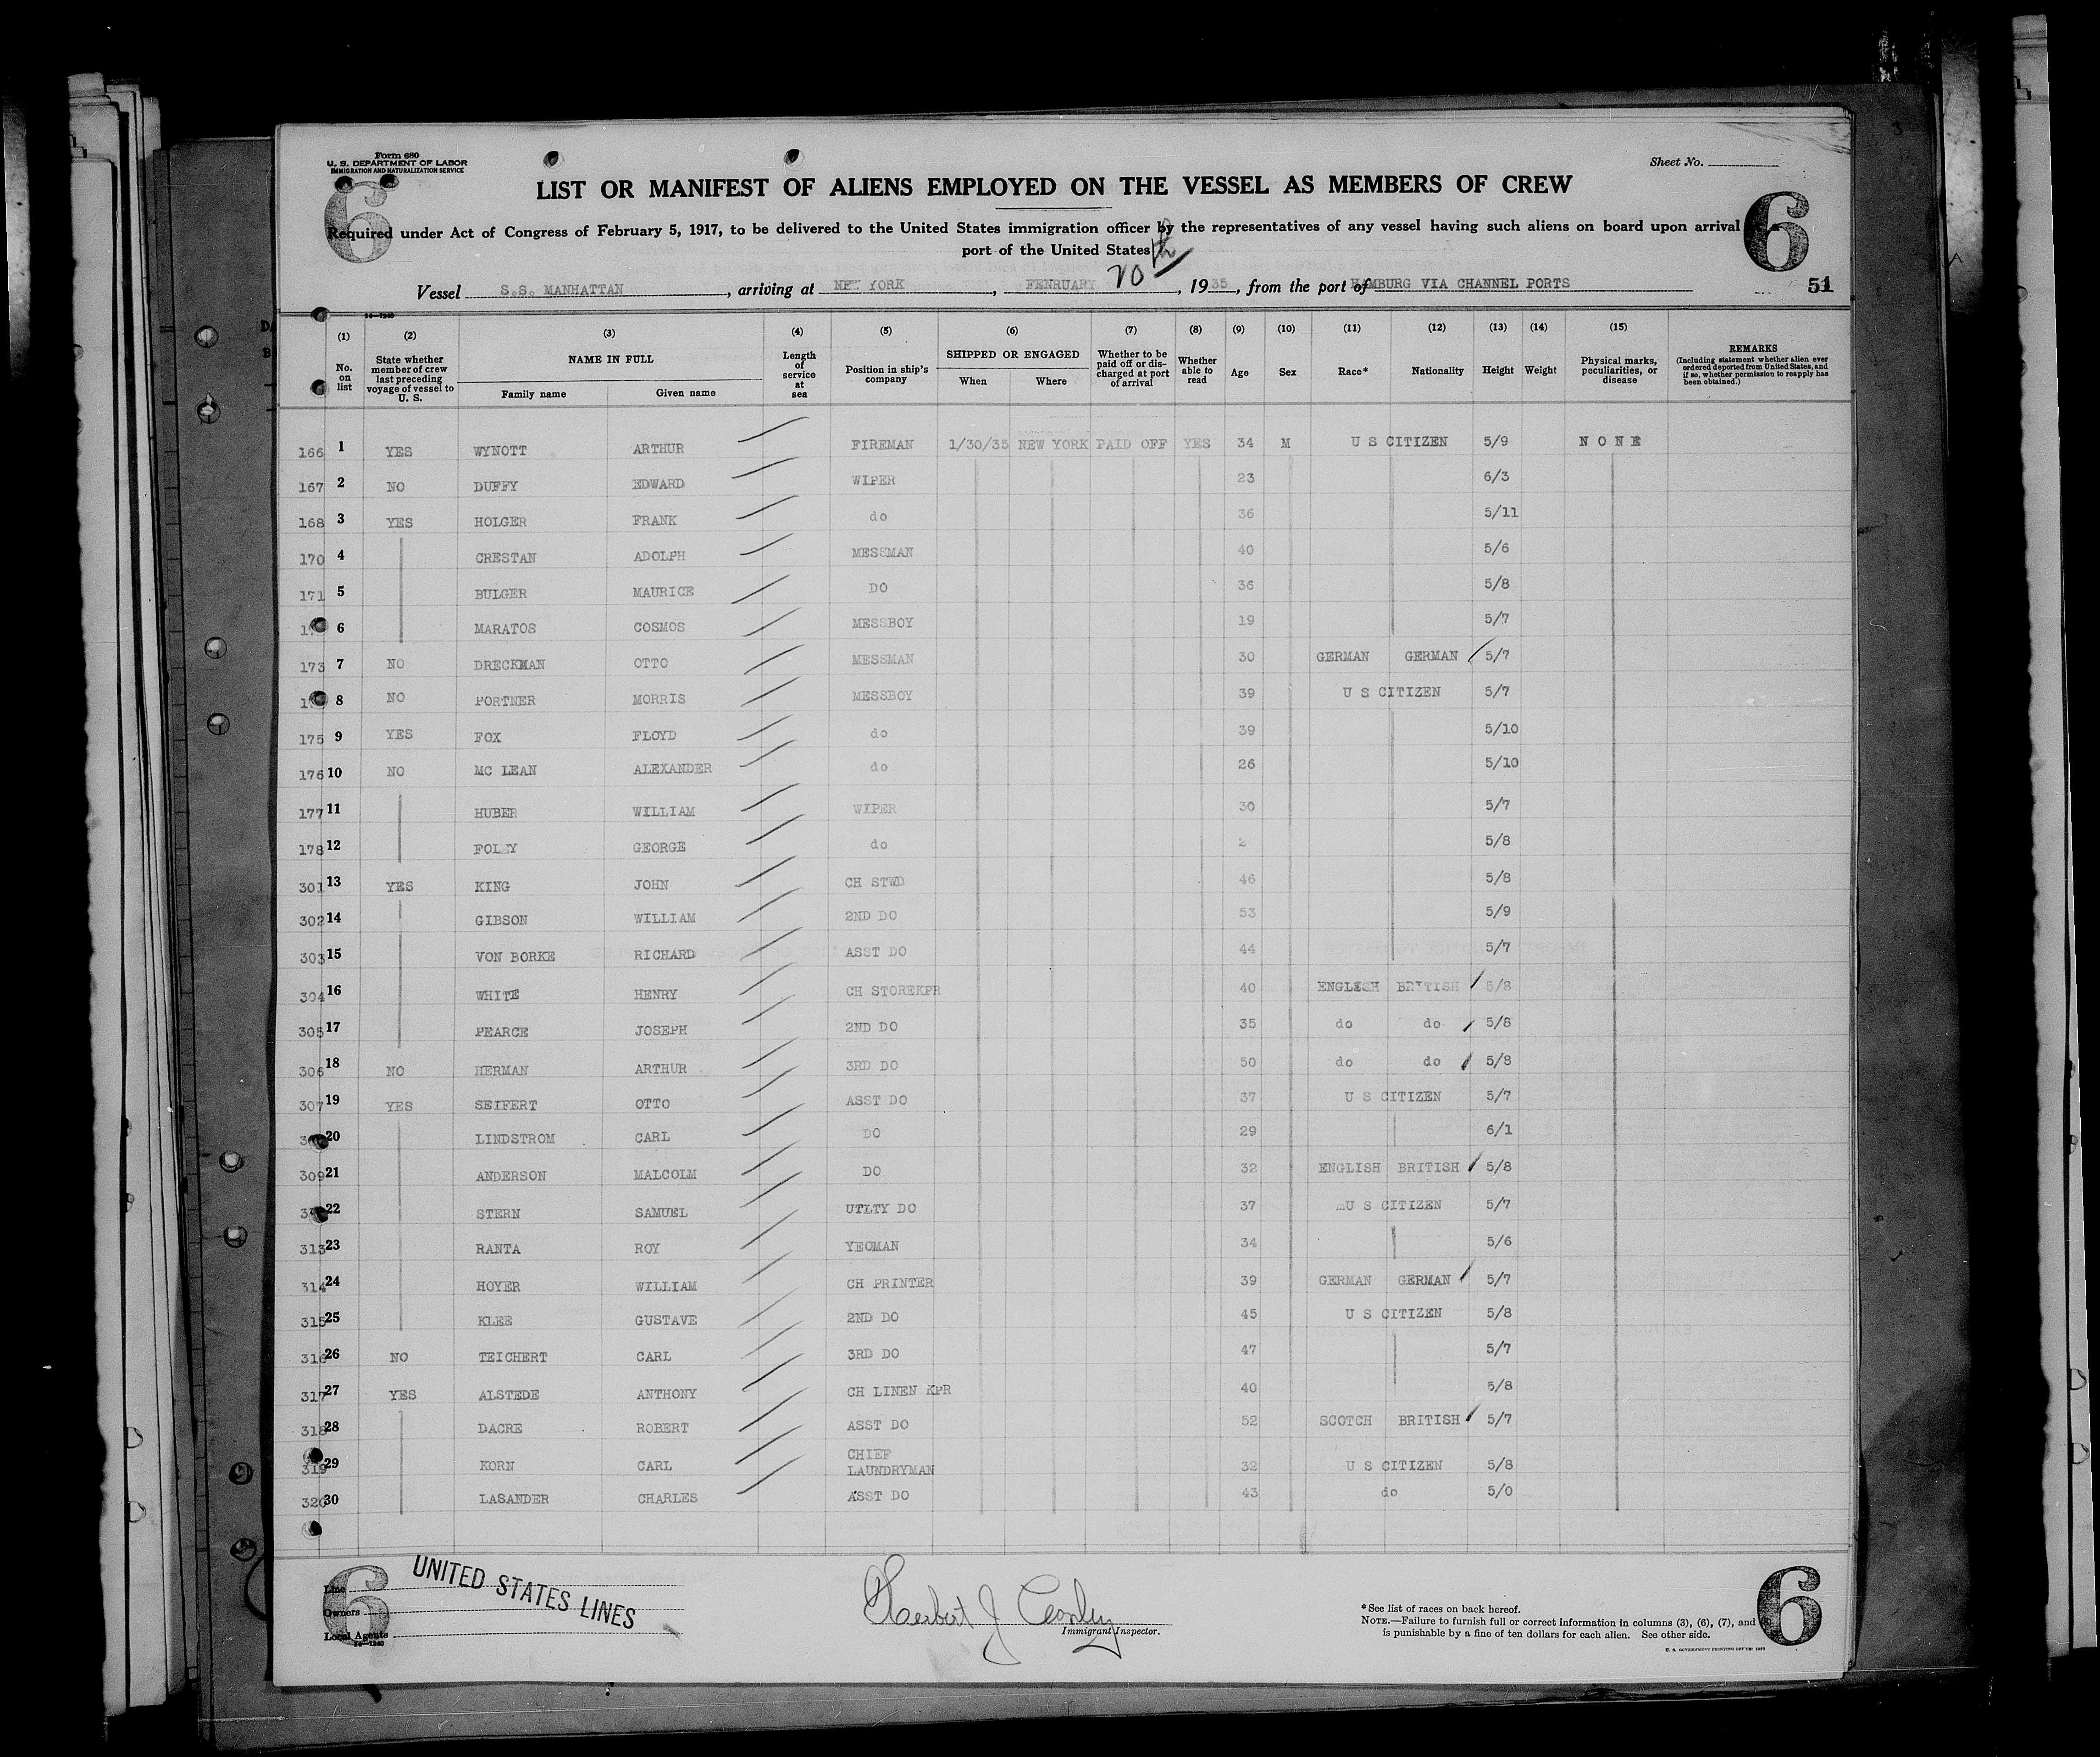 Form 680
U. S. DEPARTMENT OF LABOR
IMMIGRATION AND NATURALIZATION SERVICE
Sheet No.
6
6
LIST OR MANIFEST OF ALIENS EMPLOYED ON THE VESSEL AS MEMBERS OF CREW
Required under Act of Congress of February 5, 1917, to be delivered to the United States immigration officer by the representatives of any vessel having such aliens on board upon arrival
port of the United States
Vessel S.S. MANHATTAN, arriving at NEW YORK, FENRUARY 20th, 1935, from the port of HAMBURG VIA CHANNEL PORTS
51
(1) (2) (3) (4) (5) (6) (7) (8) (9) (10) (11) (12) (13) (14) (15)
No. on list
State whether member of crew last preceding voyage of vessel to U. S.
NAME IN FULL
Family name
Given name
Length of service at sea
Position in ship's company
SHIPPED OR ENGAGED
When
Where
Whether to be paid off or discharged at port of arrival
Whether able to read
Age
Sex
Race*
Nationality
Height
Weight
Physical marks, peculiarities, or disease
REMARKS
(Including statement whether alien ever ordered deported from United States, and if so, whether permission to reapply has been obtained.)
166 1 YES WYNOTT ARTHUR FIREMAN 1/30/35 NEW YORK PAID OFF YES 34 M U S CITIZEN 5/9 NONE
167 2 NO DUFFY EDWARD WIPER 23 6/3
168 3 YES HOLGER FRANK do 36 5/11
170 4 CRESTAN ADOLPH MESSMAN 40 5/6
171 5 BULGER MAURICE DO 36 5/8
6 MARATOS COSMOS MESSBOY 19 5/7
173 7 NO DRECKMAN OTTO MESSMAN 30 GERMAN GERMAN 5/7
8 NO PORTNER MORRIS MESSBOY 39 U S CITIZEN 5/7
175 9 YES FOX FLOYD do 39 5/10
176 10 NO MC LEAN ALEXANDER do 26 5/10
177 11 HUBER WILLIAM WIPER 30 5/7
178 12 FOLEY GEORGE do 5/8
301 13 YES KING JOHN CH STWD 46 5/8
302 14 GIBSON WILLIAM 2ND DO 53 5/9
303 15 VON BORKE RICHARD ASST DO 44 5/7
304 16 WHITE HENRY CH STOREKPR 40 ENGLISH BRITISH 5/8
305 17 PEARCE JOSEPH 2ND DO 35 do do 5/8
306 18 NO HERMAN ARTHUR 3RD DO 50 do do 5/8
307 19 YES SEIFERT OTTO ASST DO 37 U S CITIZEN 5/7
20 LINDSTROM CARL DO 29 6/1
309 21 ANDERSON MALCOLM DO 32 ENGLISH BRITISH 5/8
22 STERN SAMUEL UTLTY DO 37 U S CITIZEN 5/7
313 23 RANTA ROY YEOMAN 34 5/6
314 24 HOYER WILLIAM CH PRINTER 39 GERMAN GERMAN 5/7
315 25 KLEE GUSTAVE 2ND DO 45 U S CITIZEN 5/8
316 26 NO TEICHERT CARL 3RD DO 47 5/7
317 27 YES ALSTEDE ANTHONY CH LINEN KPR 40 5/8
318 28 DACRE ROBERT ASST DO 52 SCOTCH BRITISH 5/7
319 29 KORN CARL CHIEF LAUNDRYMAN 32 U S CITIZEN 5/8
320 30 LASANDER CHARLES ASST DO 43 do 5/0
6
6
Line
Owners
Local Agents
UNITED STATES LINES
Herbert J
Immigrant Inspector.
*See list of races on back hereof.
NOTE.—Failure to furnish full or correct information in columns (3), (6), (7), and
is punishable by a fine of ten dollars for each alien. See other side.